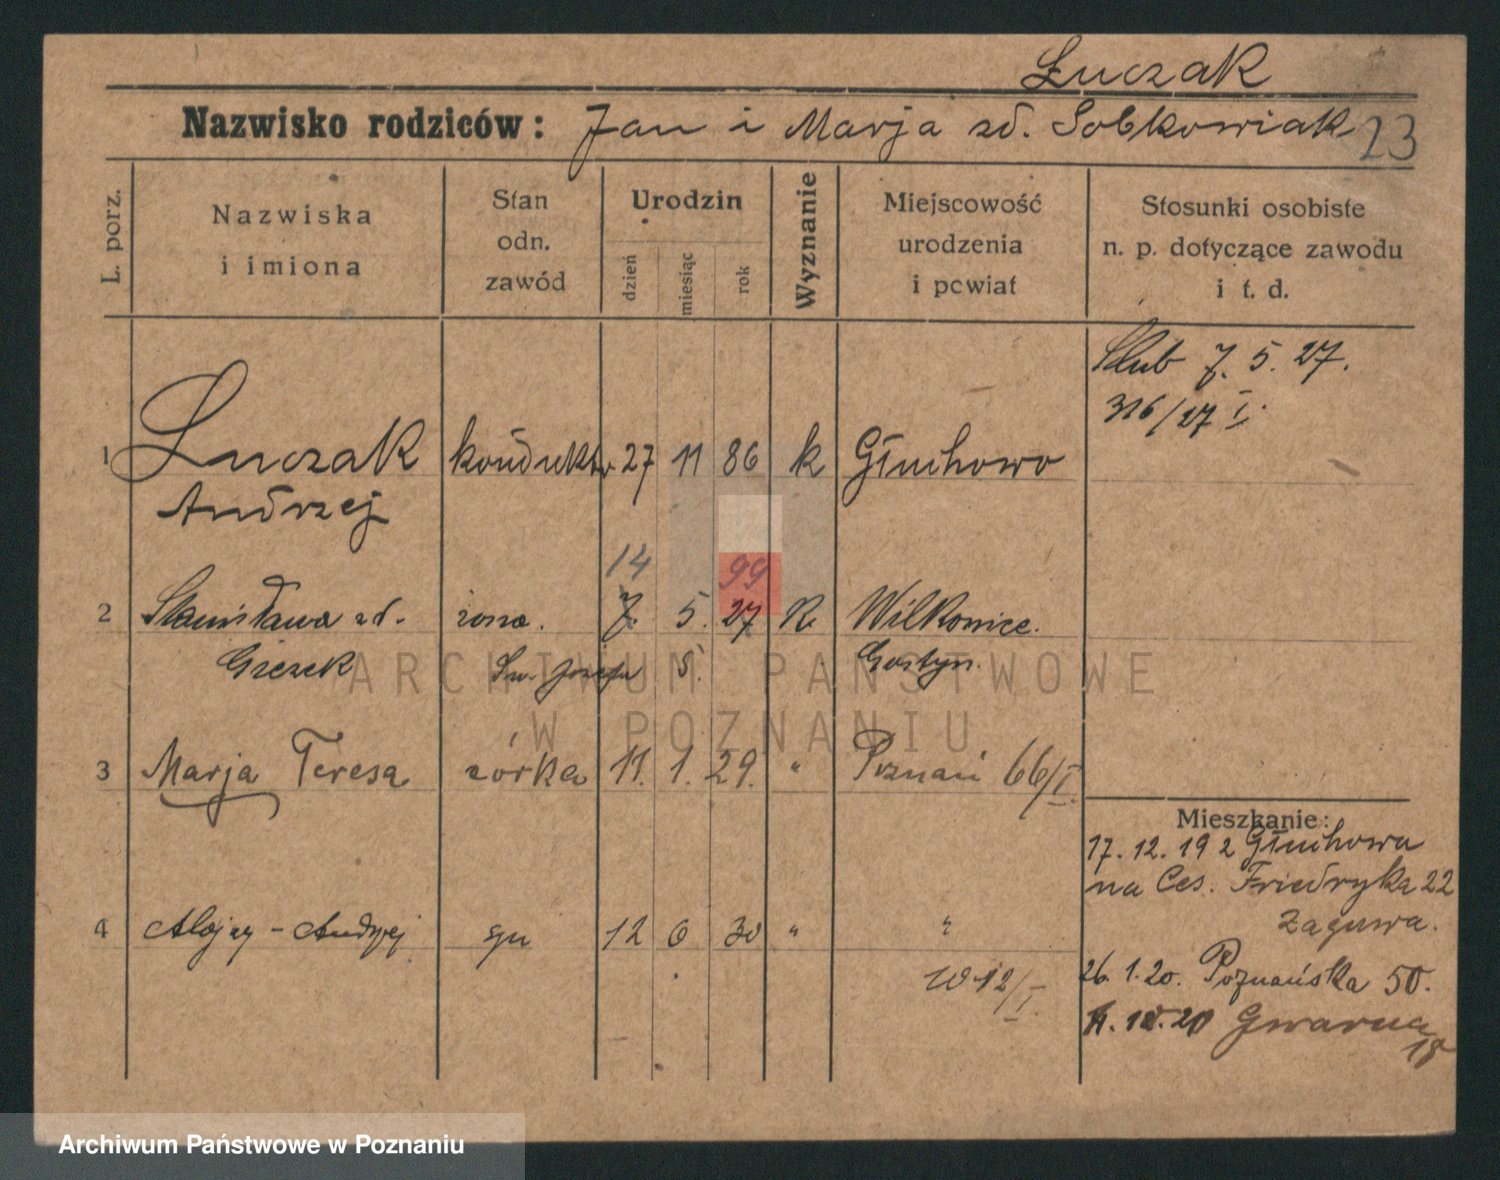 Łuczak
Nazwisko rodziców: Jan i Marja zd. Sobkowiak 23
L. porz.
Nazwiska i imiona
Stan odn. zawód
Urodzin
dzień
miesiąc
rok
Wyznanie
Miejscowość urodzenia i powiat
Stosunki osobiste n. p. dotyczące zawodu i t. d.
Ślub 7. 5. 27.
316/27 I.
1 Łuczak konduktor 27 11 86 k Głuchowo
Andrzej
14 99
2 Stanisława zd. żona. 7. 5. 27 k. Wilkonice.
Giezek 5. Gostyń.
3 Marja Teresa córka 11. 1. 29. " Poznań 66/I.
Mieszkanie:
17. 12. 19 z Głuchowa
na Ces. Friedryka 22
4 Alojzy - Andrzej syn 12 6 30 " "
26. 1. 20. Poznańska 50.
1012/I.
20 Gwarna
18
ARCHIWUM PAŃSTWOWE
W POZNANIU
Archiwum Państwowe w Poznaniu